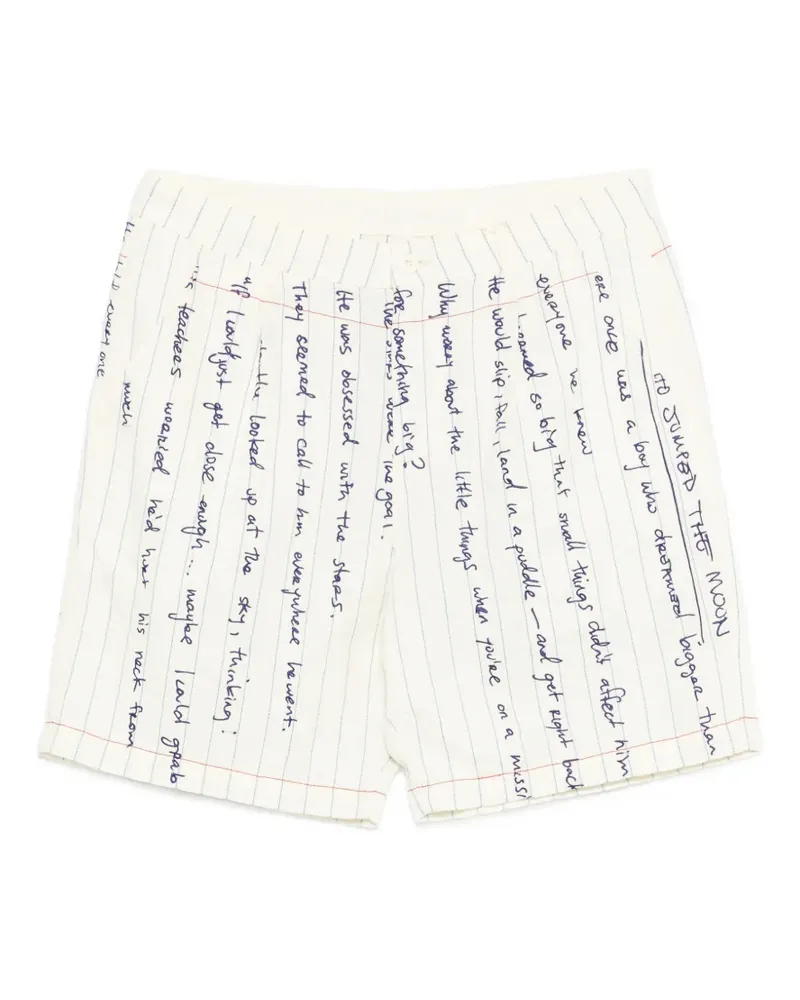 HO JUMPED THE MOON
ere once was a boy who dreamed bigger than
everyone he knew
so big that small things didn't affect him
He would slip, fall, land in a puddle — and get right back
Why worry about the little things when you're on a missi
for something big?
The stars were the goal.
He was obsessed with the stars.
They seemed to call to him everywhere he went.
he looked up at the sky, thinking:
"If I could just get close enough... maybe I could grab
teachers worried he'd hurt his neck from
much
every one